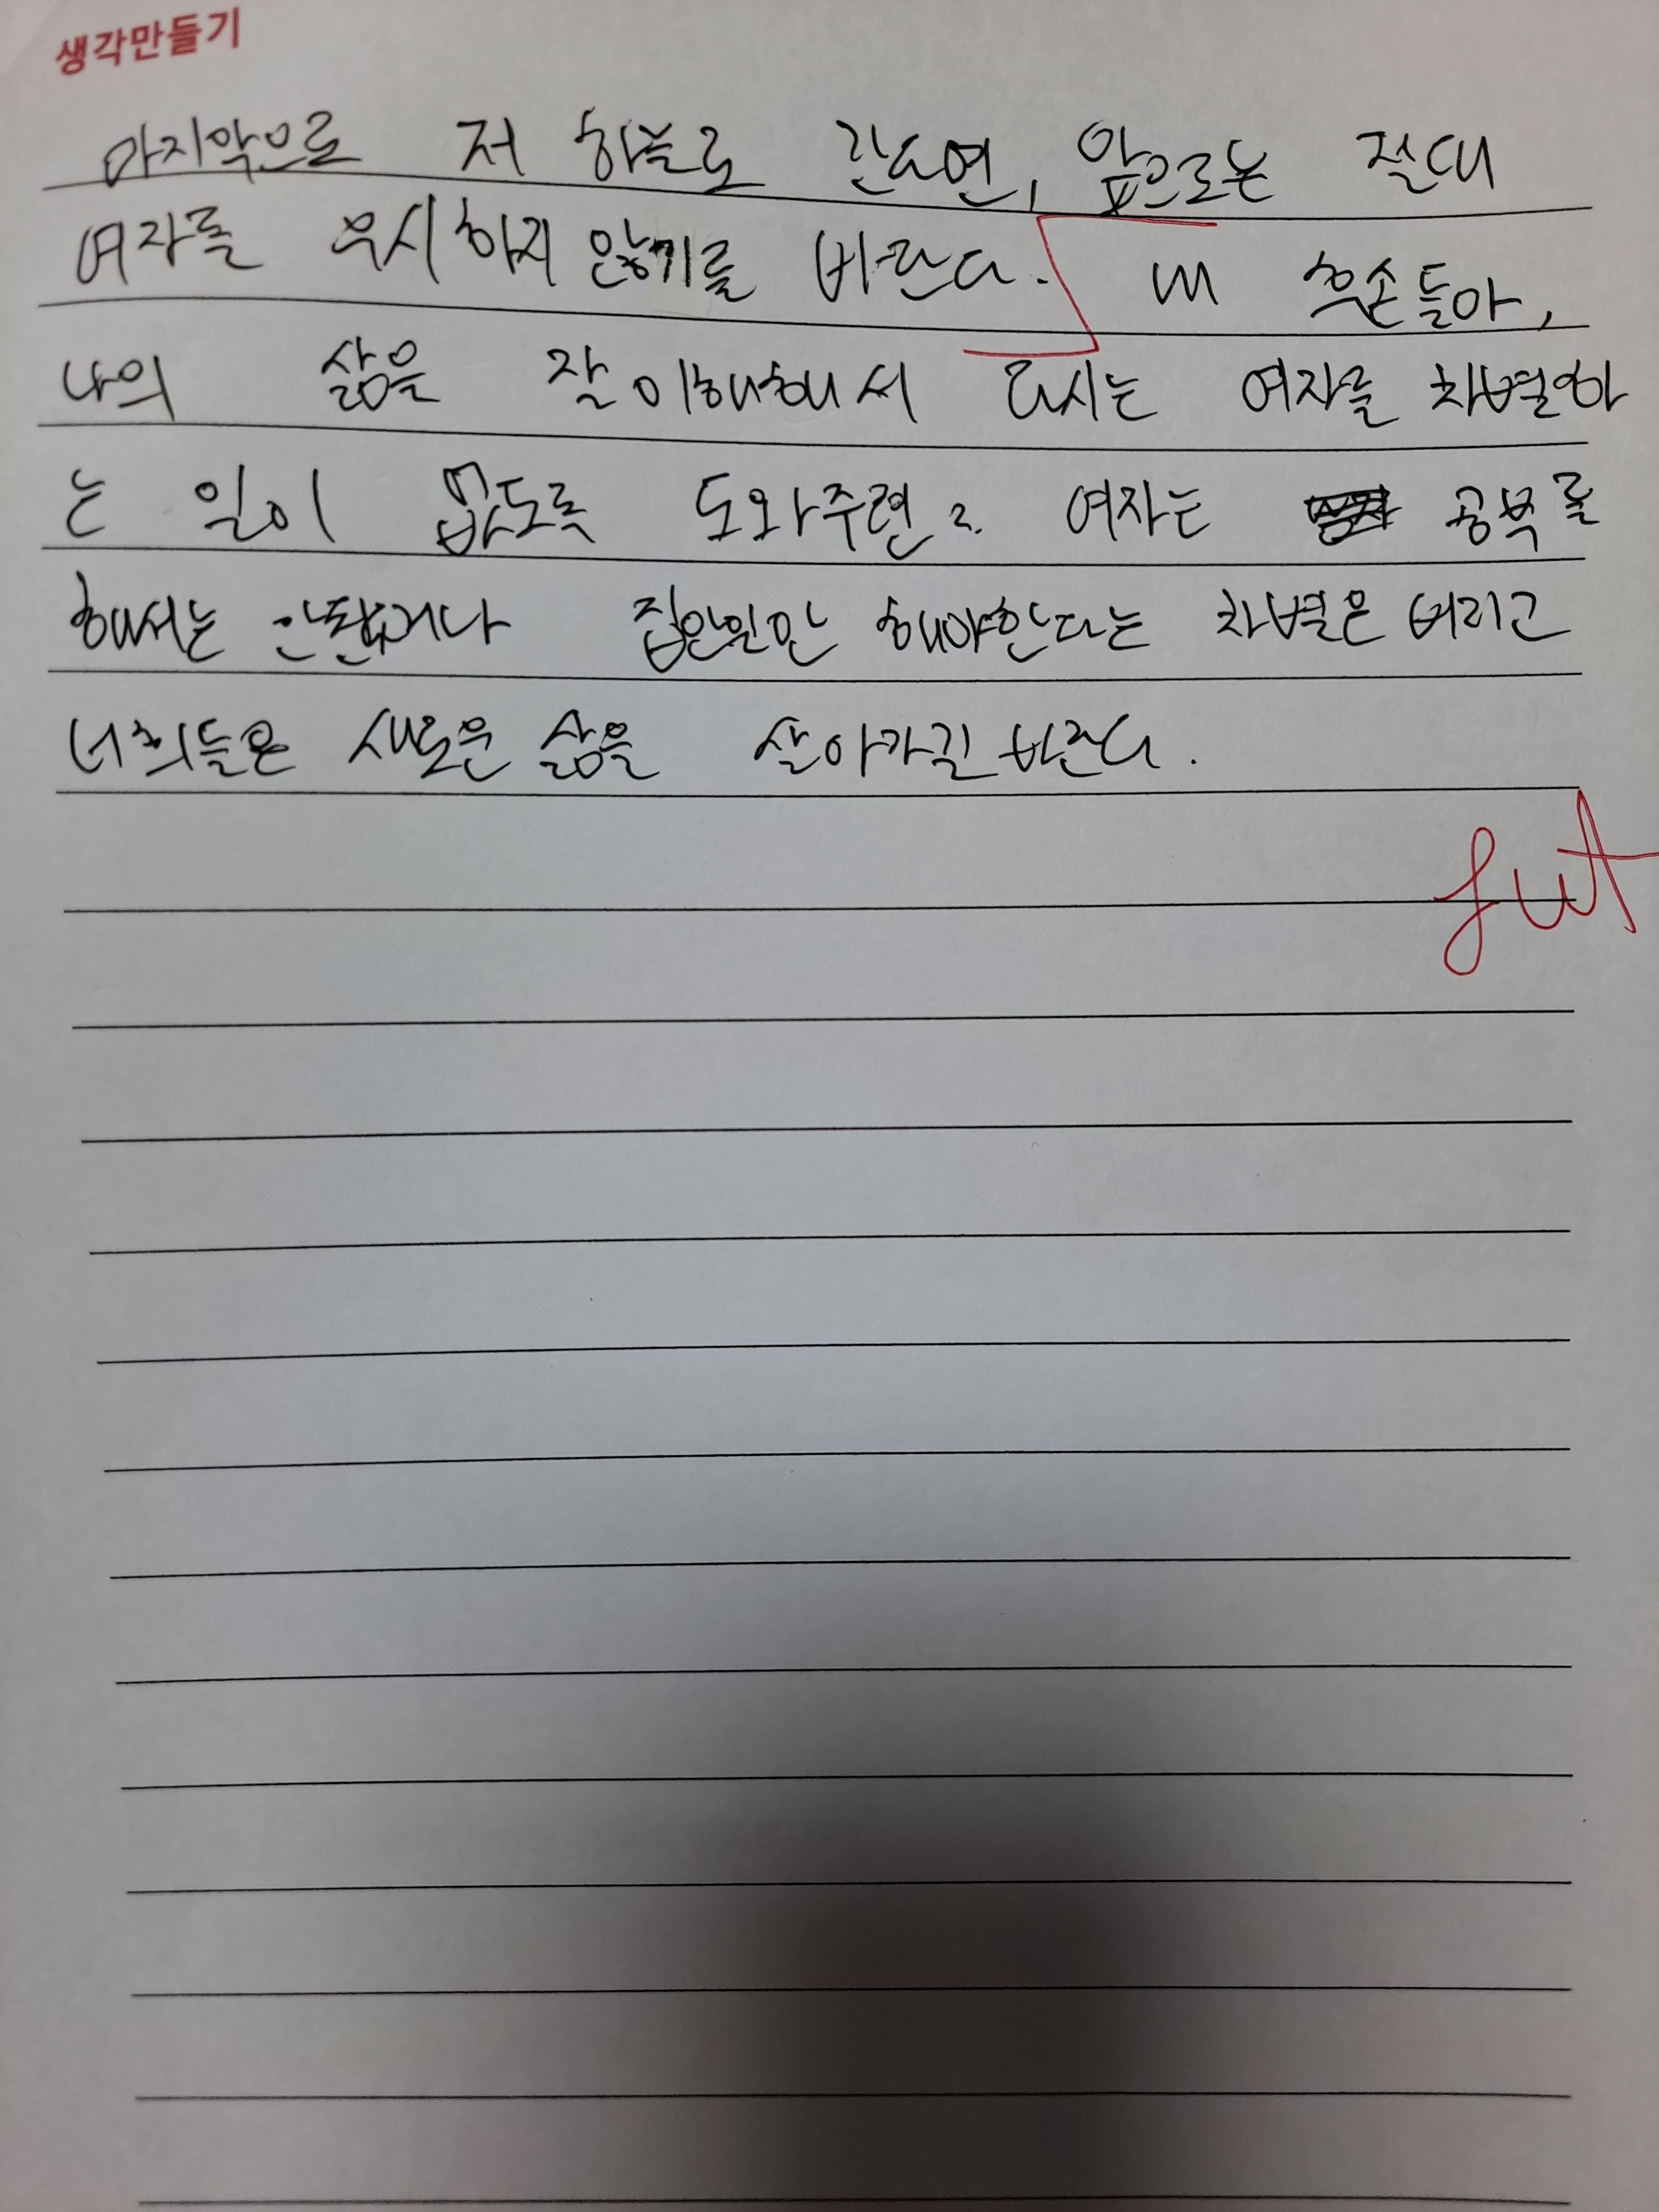 생각만들기
마지막으로 저 하늘로 간다면, 앞으로는 절대
여자를 무시하지 않기를 바란다. 내 후손들아,
나의 삶을 잘 이해해서 다시는 여자를 차별하
는 일이 없도록 도와주련. 여자는 공부를
해서는 안된거나 집안일만 해야한다는 차별은 버리고
너희들은 새로운 삶을 살아가길 바란다.